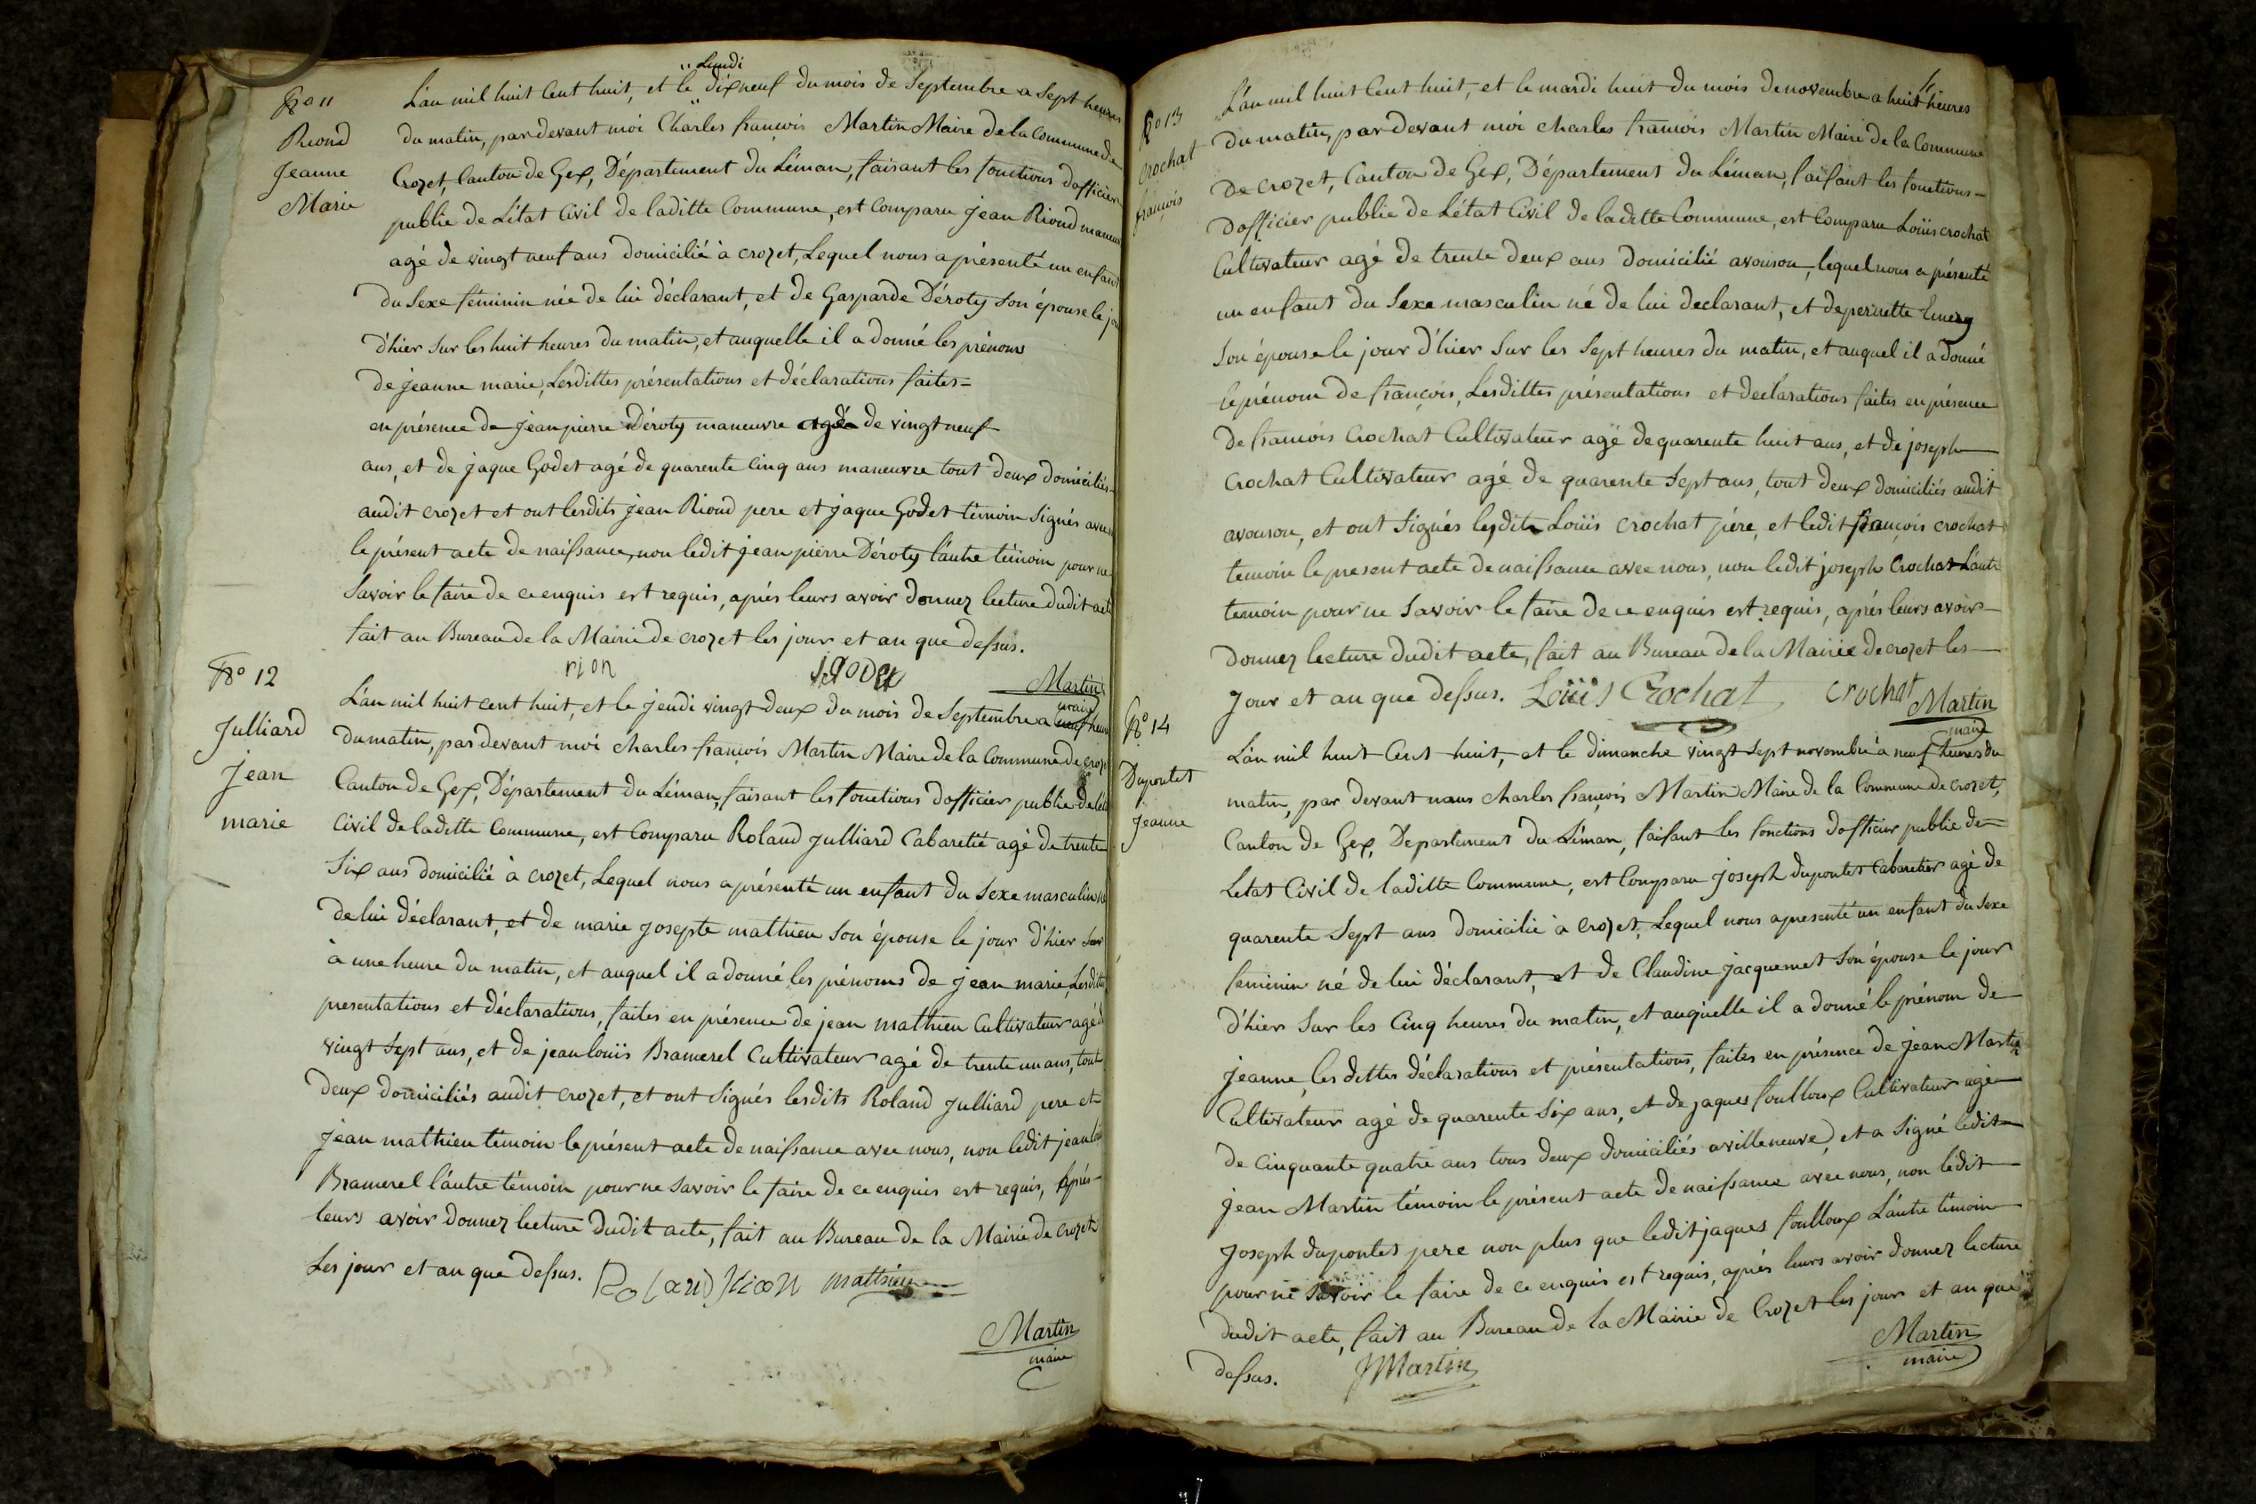 No 11
Riond
Jeanne
Marie
Lundi
L'an mil huit Cent huit, et le dixneuf du mois de Septembre a Sept heures
du matin, par devant moi Charles francois Martin Maire de la Commune de
Crozet, Canton de Gex, Département du Léman, faisant les fonctions d'officier
public de L'état Civil de laditte Commune, est Comparu Jean Riond
agé de vingt neuf ans domicilié à crozet, Lequel nous a présenté un enfant
du Sexe féminin née de lui déclarant, et de Gasparde Déroty son épouse le
d'hier sur les huit heures du matin, et auquelle il a donné les prénoms
de jeanne marie, Lesdittes présentations et déclarations faites=
en présence de Jean pierre Déroty maneuvre agée de vingt neuf
ans, et de jaque Godet agé de quarente Cinq ans maneuvre tout deux domiciliés
audit crozet et ont lesdits jean Riond pere et jaque Godet témoin Signés
le présent acte de naissance, non ledit jean pierre Déroty l'autre témoin pour ne
Savoir le faire de ce enquis est requis, aprés leurs avoir donnez lecture dudit acte
fait au Bureau de la Mairie de crozet les jour et an que dessus.
rion
Martin
maire
No 12
Julliard
Jean
marie
L'an mil huit cent huit, et le jeudi vingt deux du mois de Septembre a neuf heures
du matin, par devant moi charles françois Martin Maire de la Commune de
Canton de Gex, Département du Léman, faisant les fonctions d'officier public de
Civil de laditte Commune, est Comparu Roland Julliard Cabaretié agé de trente
Six ans domicilié à crozet, Lequel nous a présenté un enfant du Sexe masculin
de lui déclarant, et de marie Josepte mathieu Son épouse le jour d'hier Sur
à une heure du matin, et auquel il a donné les prénoms de jean marie, Lesdittes
presentations et déclarations, faites en présence de jean mathieu Cultivateur agé
vingt Sept ans, et de jean louïs Bramerel Cultivateur agé de trente un ans, tout
deux domiciliés audit crozet, et ont Signés lesdits Roland Julliard pere et
jean mathieu témoin le présent acte de naissance avec nous, non ledit jean
Bramerel l'autre témoin pour ne Savoir le faire de ce enquis est requis, Aprés-
leurs avoir donnez lecture dudit acte, fait au Bureau de la Mairie de Crozet
Les jour et an que dessus. Roland Jean mathieu
Martin
maire
No 13
Crochat
françois
L'an mil huit Cent huit, et le mardi huit du mois de novembre a huit heures
du matin, par devant moi charles francois Martin Maire de la Commune
de crozet, Canton de Gex, Département du Léman, faisant les fonctions-
d'officier public de L'état Civil de laditte Commune, est Comparu Loüis crochat
Cultivateur agé de trente deux ans domicilié avouson, lequel nous a présenté
un enfant du Sexe masculin né de lui declarant, et de pernette Emery
Son épouse le jour d'hier Sur les Sept heures du matin, et auquel il a donné
le prénom de françois, Lesdittes présentations et declarations faites en présence
de francois Crochat Cultivateur agé de quarente huit ans, et de joseph
Crochat Cultivateur agé de quarente Sept ans, tout deux domiciliés audit
avouson, et ont Signés lesdits Loüis Crochat pére, et ledit françois crochat
temoin le present acte de naissance avec nous, non ledit joseph Crochat L'autre
temoin pour ne Savoir le faire de ce enquis est requis, aprés leurs avoir
donnez lecture dudit acte, fait au Bureau de la Mairie de crozet les
jour et an que dessus. Loüis Crochat crochat Martin
maire
No 14
Dupontet
Jeanne
L'an mil huit Cent huit, et le dimanche vingt Sept novembre à neuf heures du
matin, par devant nous charles françois Martin Maire de la Commune de crozet,
Canton de Gex, Departement du Léman, faisant les fonctions d'officier public de
Letat Civil de laditte Commune, est Comparu Joseph dupontet Cabaretier agé de
quarente Sept ans domicilié à Crozet, Lequel nous a presenté un enfant du Sexe
feminin né de lui déclarant, et de Claudine jacquemet Son épouse le jour
d'hier Sur les Cinq heures du matin, et auquelle il a donné le prénom de
jeanne, les dittes déclarations et présentations, faites en présence de jean Martin
Cultivateur agé de quarente Six ans, et de jaques foulloux Cultivateur agé
de Cinquante quatre ans tous deux domiciliés a villeneuve, et a Signé ledit
jean Martin témoin le présent acte de naissance avec nous, non ledit
Joseph dupontet pere non plus que ledit jaques foulloux L'autre témoin
pour ne savoir le faire de ce enquis est requis, aprés leurs avoir donnez lecture
dudit acte, fait au Bureau de la Mairie de Crozet les jour et an que
dessus. JMartin
Martin
maire